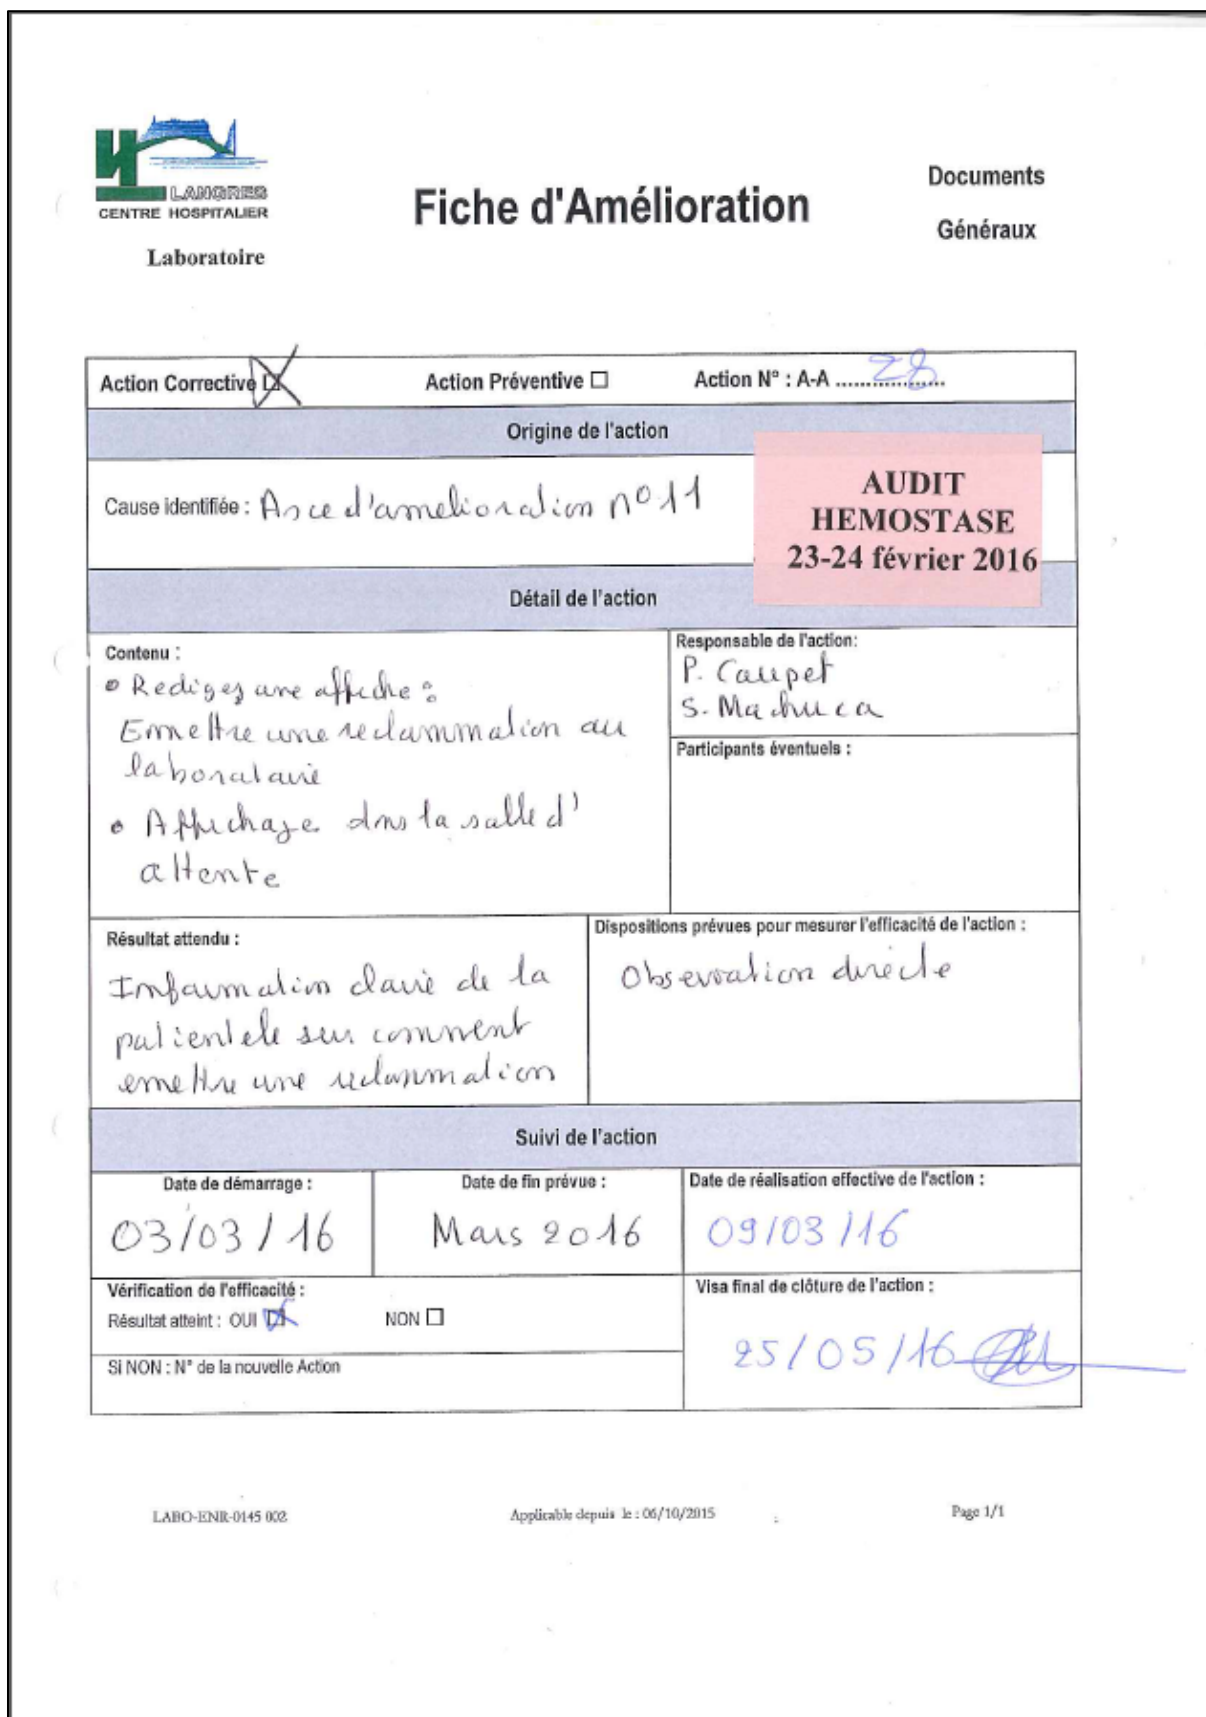 LANGRES
CENTRE HOSPITALIER
Laboratoire
Fiche d'Amélioration
Documents
Généraux
Action Corrective ☒ Action Préventive ☐ Action N° : A-A ..... 28
Origine de l'action
Cause identifiée : Asce d'amelioration n° 11
AUDIT
HEMOSTASE
23-24 février 2016
Détail de l'action
Contenu :
• Rediger une affiche :
Emettre une reclammation au
laboratoire
• Affichage dans la salle d'
attente
Responsable de l'action:
P. Caupet
S. Machuca
Participants éventuels :
Résultat attendu :
Information claire de la
patientele sur comment
emettre une reclammation
Dispositions prévues pour mesurer l'efficacité de l'action :
Observation directe
Suivi de l'action
Date de démarrage :
03/03/16
Date de fin prévue :
Mars 2016
Date de réalisation effective de l'action :
09/03/16
Vérification de l'efficacité :
Résultat atteint : OUI ☒ NON ☐
Si NON : N° de la nouvelle Action
Visa final de clôture de l'action :
25/05/16
LABO-ENR-0145 002 Applicable depuis le : 06/10/2015 Page 1/1